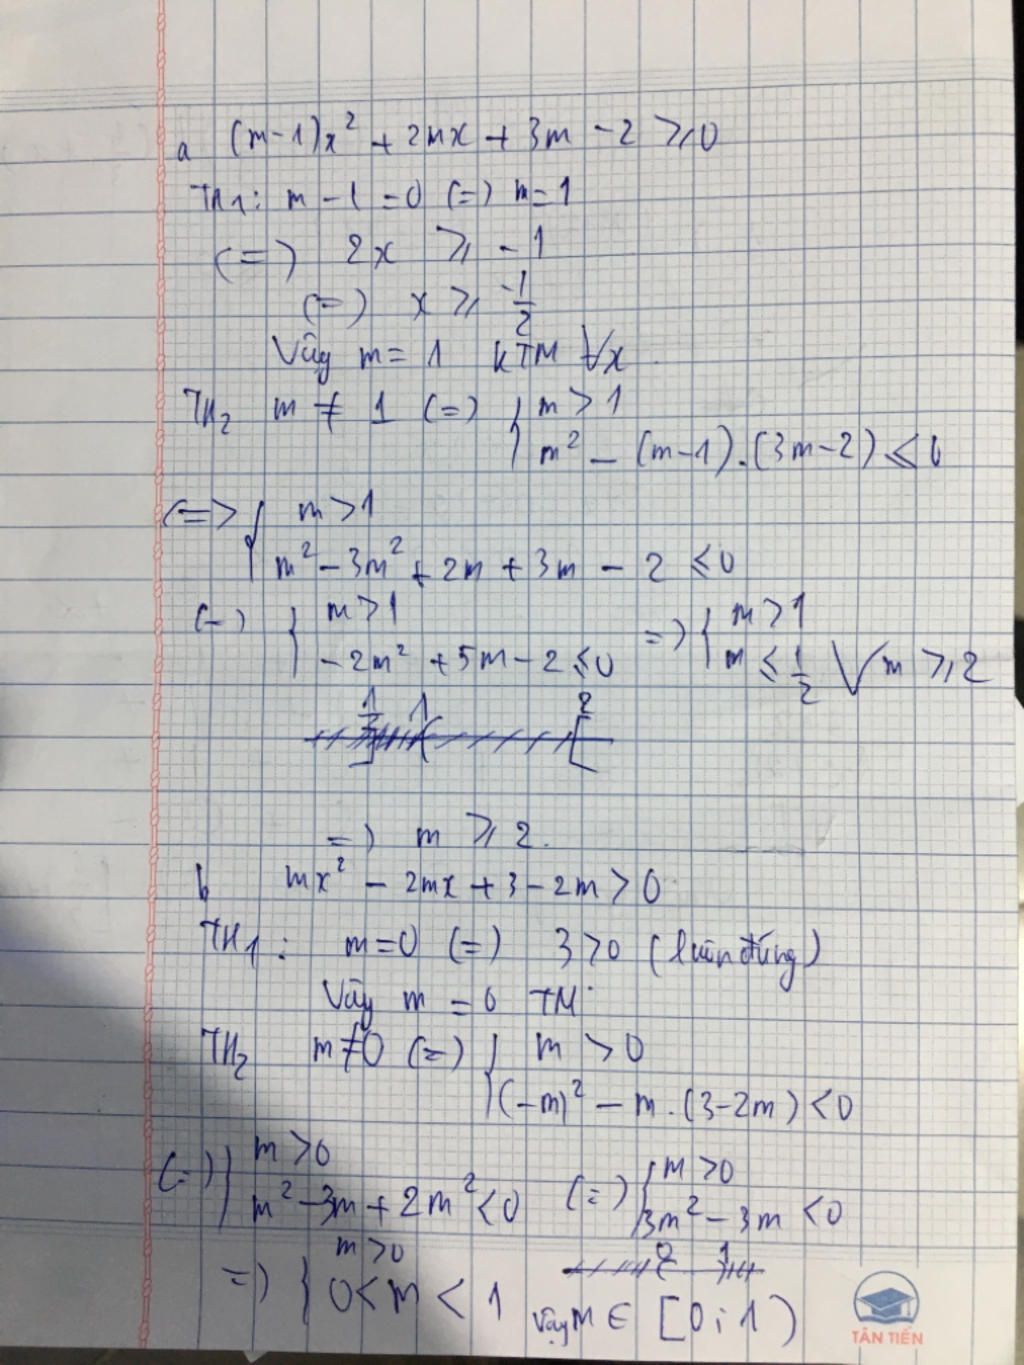 a (m-1)x² + 2mx + 3m - 2 ⩾ 0
TH1: m - 1 = 0 (=) m = 1
(=) 2x ⩾ - 1
(=) x ⩾ -1/2
Vậy m = 1 KTM ∀x.
TH2 m ≠ 1 (=) { m > 1
m² - (m-1).(3m-2) ≤ 0
(=> { m > 1
m² - 3m² + 2m + 3m - 2 ≤ 0
(=) { m > 1 =) { m > 1
-2m² + 5m - 2 ≤ 0 m ≤ 1/2 ∨ m ⩾ 2
1/2 1 2
=) m ⩾ 2.
b mx² - 2mx + 3 - 2m > 0
TH1: m = 0 (=) 3 > 0 (luôn đúng)
Vậy m = 0 TM.
TH2 m ≠ 0 (=) { m > 0
(-m)² - m.(3-2m) < 0
(=) { m > 0 (=) { m > 0
m² - 3m + 2m² < 0 3m² - 3m < 0
=) { m > 0 0 1
0 < m < 1 Vậy m ∈ [0; 1)
TÂN TIẾN